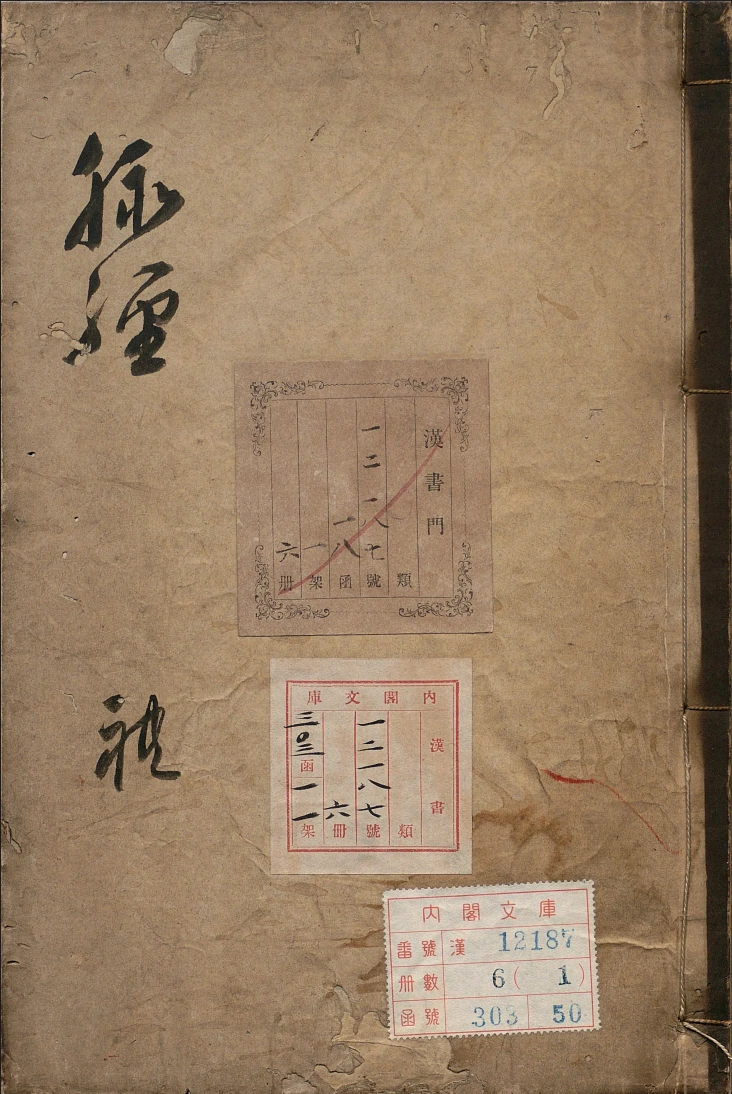 脉經
漢書門
類
一二一八七號
一八函
一架
六册
内閣文庫
漢書
類
一二一八七號
六冊
三〇三函一一架
内閣文庫
番號 漢 12187
冊數 6( 1)
函號 303 50